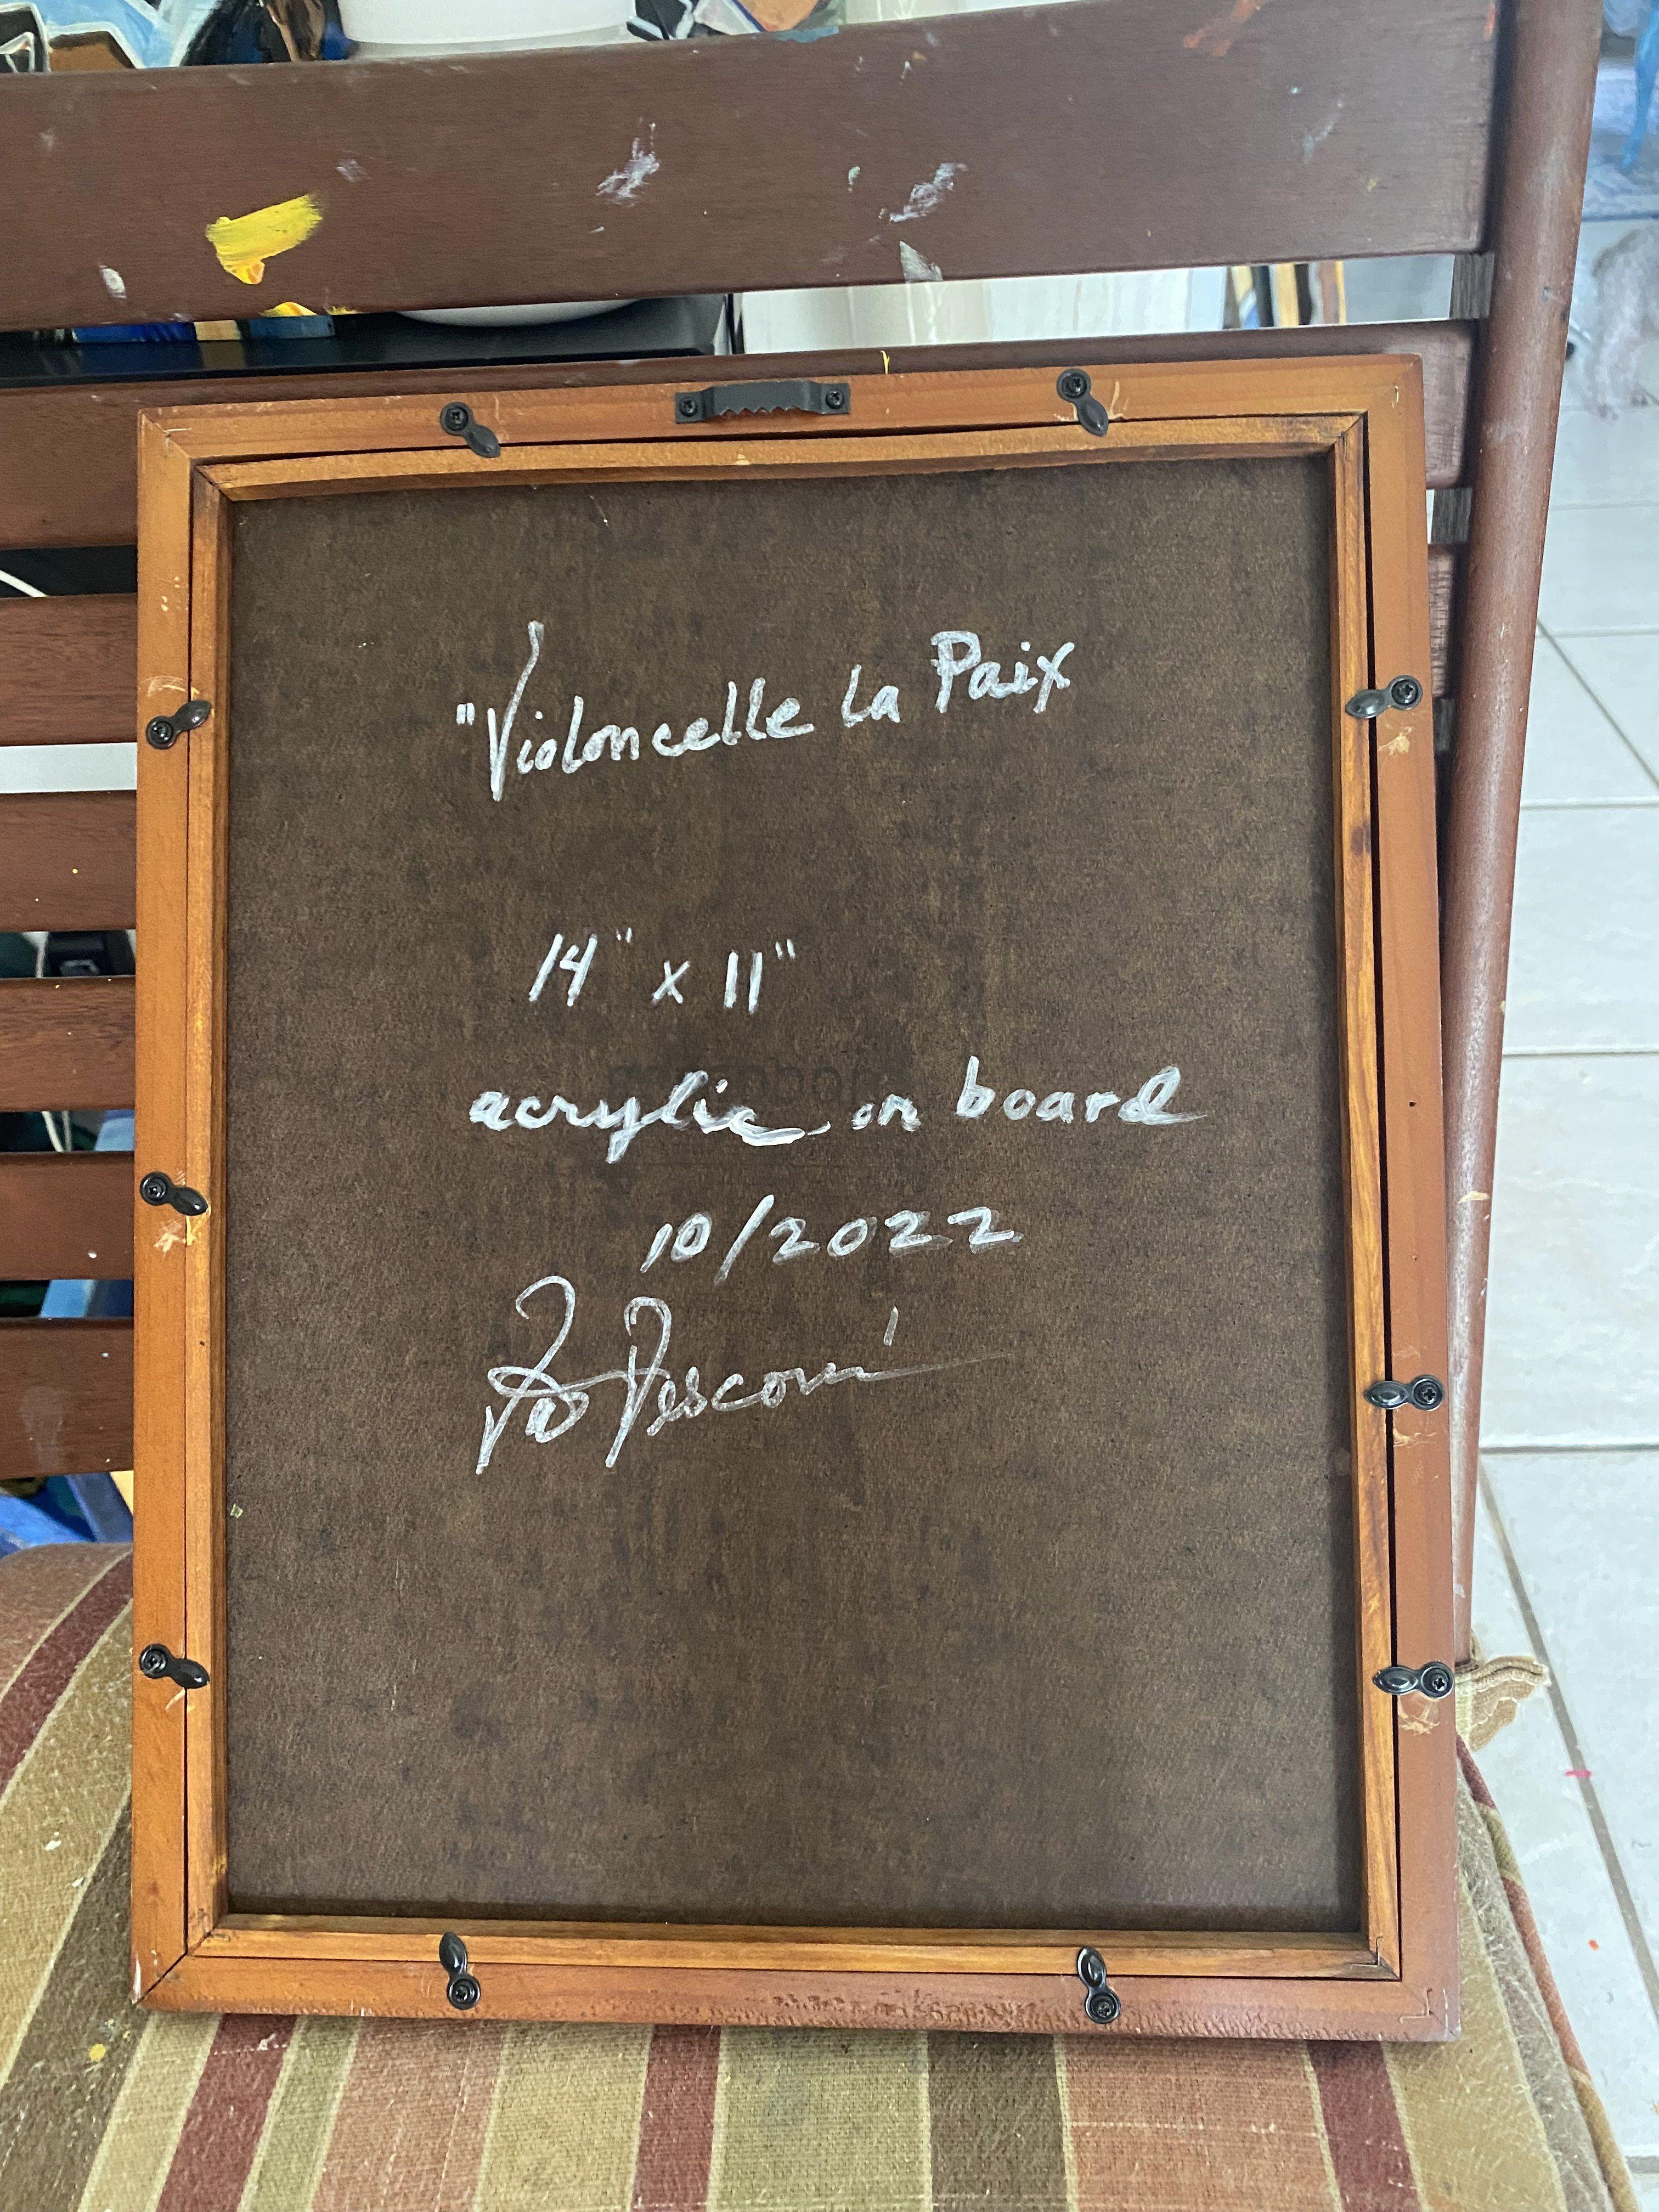 "Violoncelle La Paix
14" x 11"
acrylic on board
10/2022